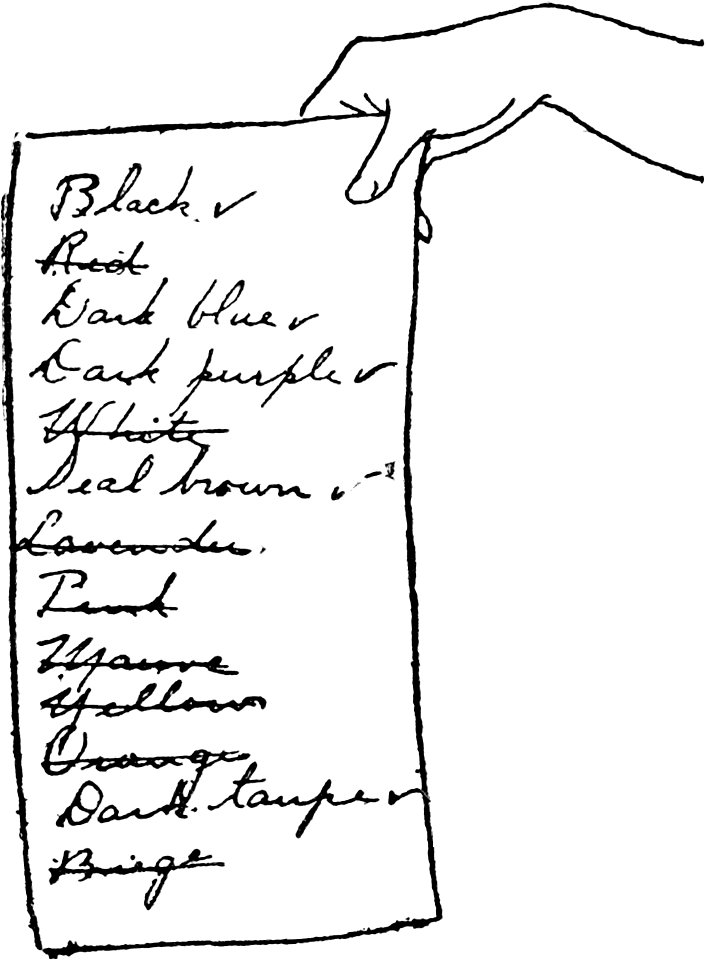 Black. ✓
Red
Dark blue ✓
Dark purple ✓
White
Seal brown ✓
Lavender.
Pink
Mauve
Yellow
Orange
Dark taupe ✓
Biege